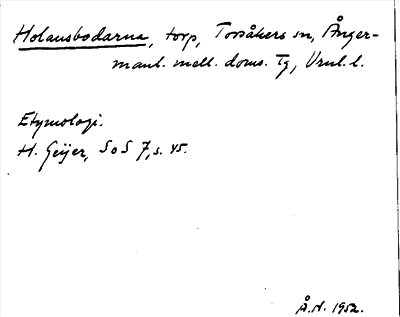 Holansbodarna, torp, Torsåkers sn, Ånger-
manl. mell. doms. Tg, Vnl. l.
Etymologi.
H. Geijer, SoS 7, s. 45.
Å.N. 1952.